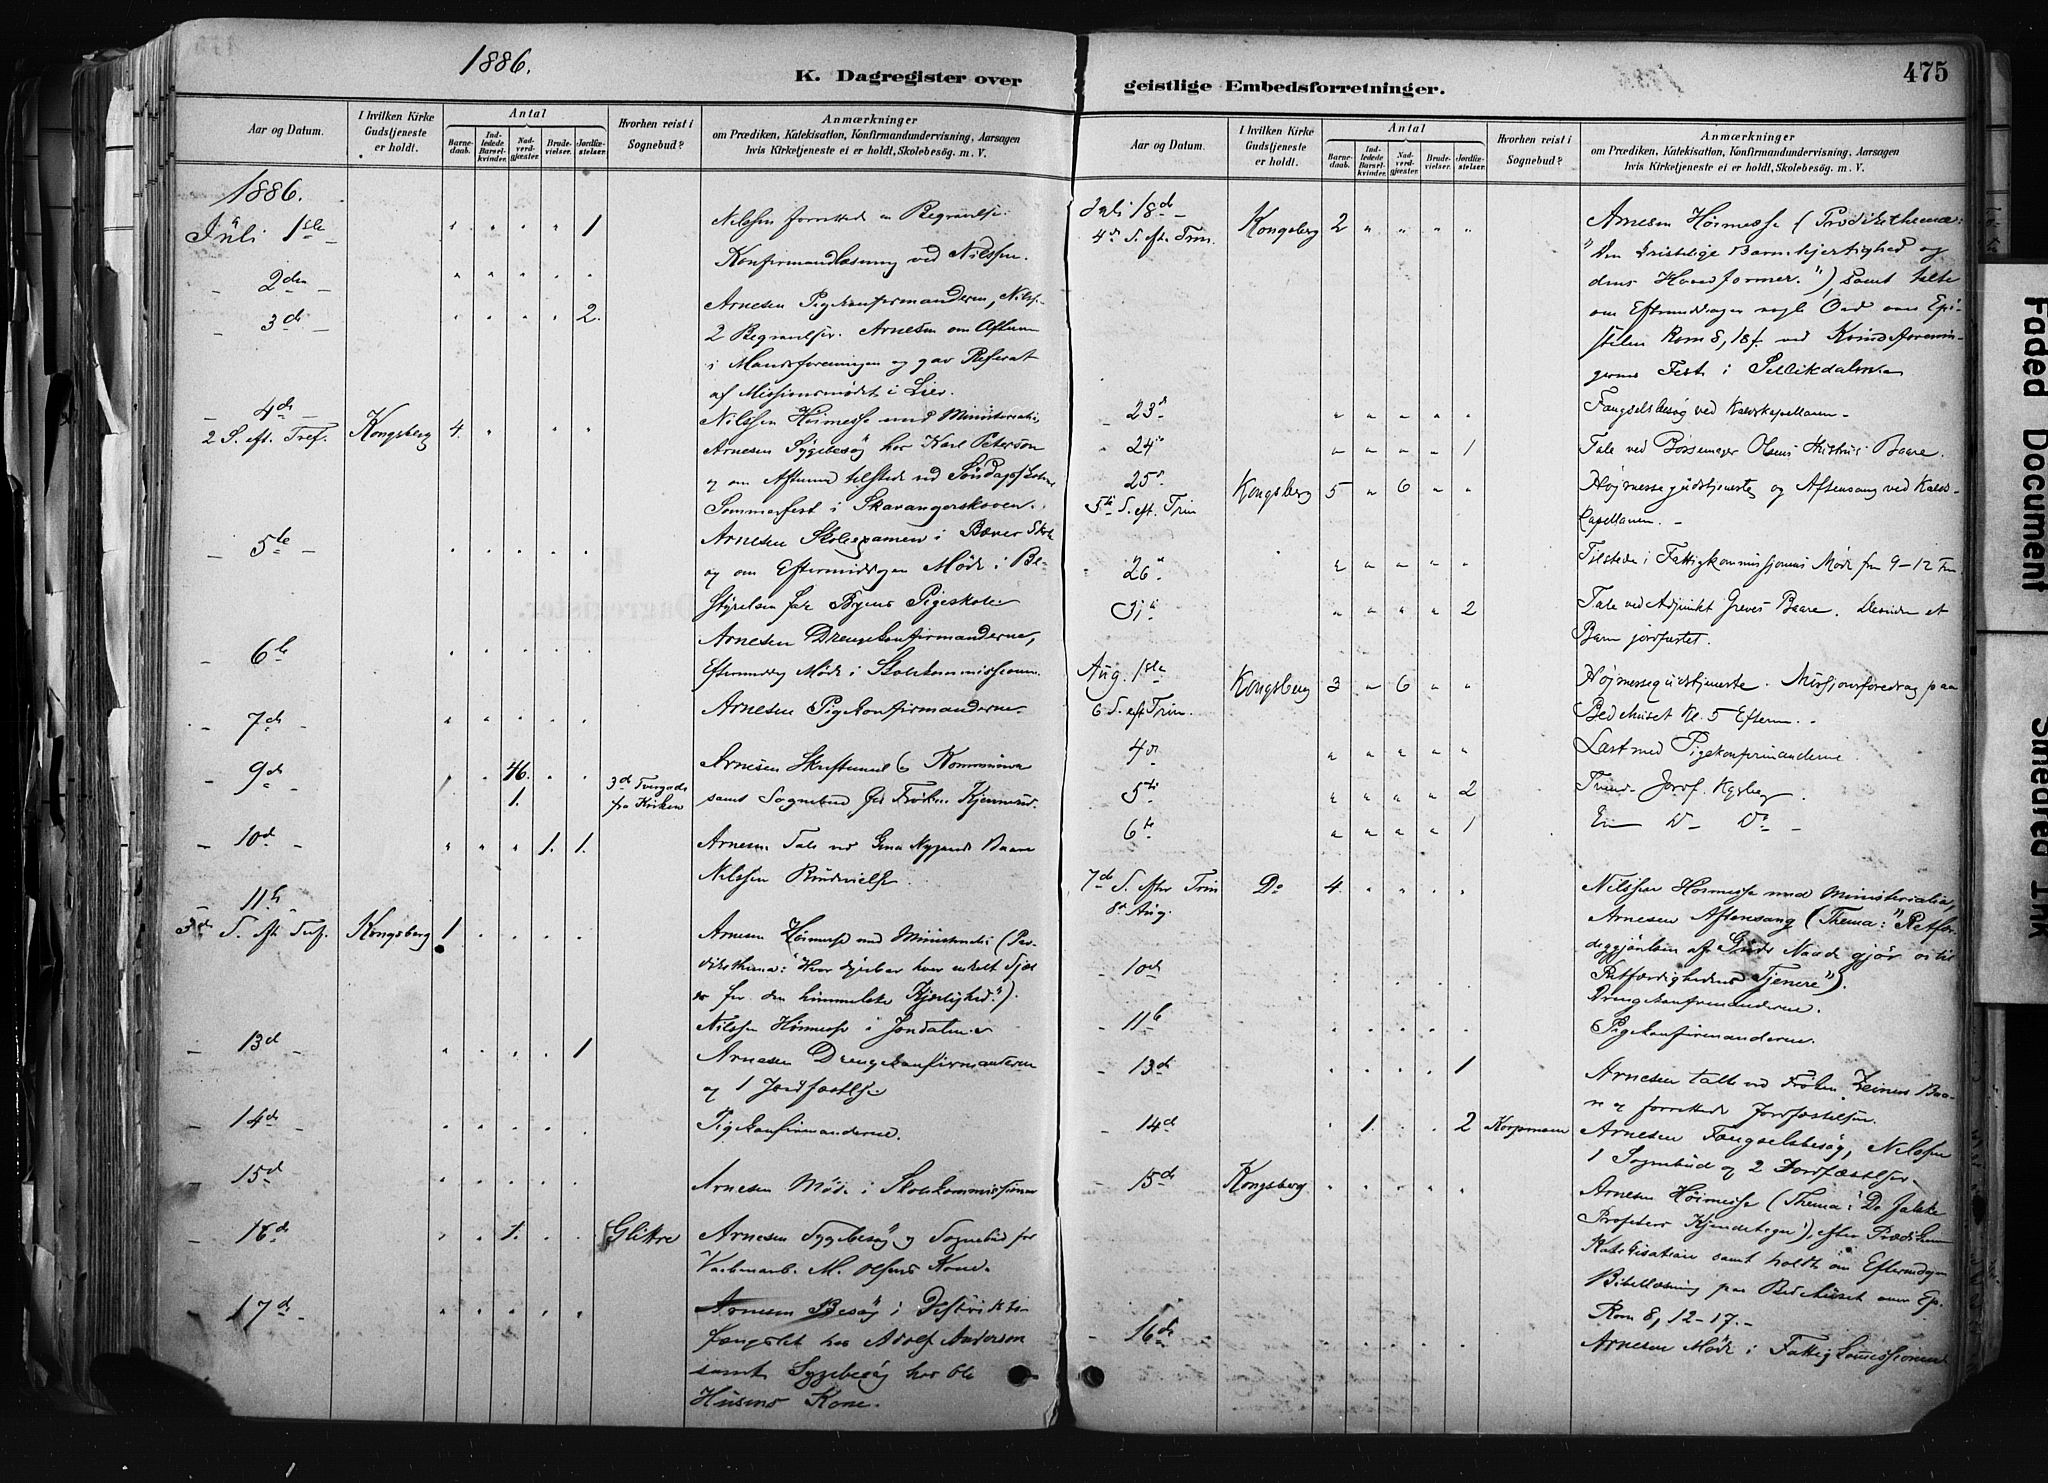 1886.
K. Dagregister over
Aar og Datum.
I hvilken Kirke Gudstjeneste er holdt.
Antal
Barnedaab.
Indledede Barselkvinder.
Nadverdgjester.
Brudevielser.
Jordfæstelser.
Hvorhen reist i Sognebud?
Anmærkninger
om Prædiken, Katekisation, Konfirmandundervisning, Aarsagen
hvis Kirketjeneste ei er holdt, Skolebesög. m. V.
1886.
Juli 1ste 1 Nilssen forrettede en Begravelse.
Konfirmandlæsning ved Nilssen.
2den
3d 2. Arnesen Pigekonfirmanderne, Nilss.
2 Begravelser. Arnesen om Aftenen
i Mandsforeningen og gav Referat
af Missionsmødet i Lier.
4de Nilssen Høimesse med Ministerialia,
2 S. eft. Tref. Kongsberg 4. Arnesen Sygebesøg hos Karl Peterson
og om Aftenen tilstede ved Søndagsskolens
Sommerfest i Skavangerskoven.
5te Arnesen Skoleexamen i Bæver Skole
og om Eftermiddagen Møde i Be-
styrelsen for Byens Pigeskole
6te Arnesen Drengekonfirmanderne,
Eftermiddag Møde i Skolekommissionen.
7de Arnesen Pigekonfirmanderne.
9de 46. Arnesen Skriftemaal & Kommunion
1. 3d Tvergade fra Kirken samt Sognebud for Frøken Kjennerud.
10d 1. 1. Arnesen Tale ved Gina Nygaards Baare
Nilssen Brudevielse.
11te
3de S. eft. Tref. Kongsberg 1 Arnesen Høimesse med Ministerialia (Præ-
dikethema: "Hvor dyrebar hver enkelt Sjæl
er for den himmelske Kjærlighed.").
Nilssen Høimesse i Jondalen.
13d 1 Arnesen Drengekonfirmanterne
og 1 Jordfæstelse
14de Pigekonfirmanderne.
15d Arnesen Møde i Skolekommissionen
16de 1. Glitre Arnesen Sygebesøg og Sognebud for
M. Olsens Kone.
17de Arnesen Besøg i Distrikts-
fængslet hos Adolf Anderson
samt Sygebesøg hos Ole
Husens Kone.
geistlige Embedsforretninger.
475
Aar og Datum.
I hvilken Kirke Gudstjeneste er holdt.
Antal
Barnedaab.
Indledede Barselkvinder.
Nadverdgjester.
Brudevielser.
Jordfæstelser.
Hvorhen reist i Sognebud?
Anmærkninger
om Prædiken, Katekisation, Konfirmandundervisning, Aarsagen
hvis Kirketjeneste ei er holdt, Skolebesög. m. V.
Juli 18d Arnesen Høimesse (Prædikethema:
4de S. eft. Trin. Kongsberg 2 "Den kristelige Barmhjertighed og
dens Hovedformer.") samt talte
om Eftermiddagen nogle Ord over Epi-
stelen Rom 8, 18 f. ved Kvindeforenin-
gernes Fest i Sellikdalen
23d Fængselsbesøg ved Kaldskapellanen.
24de 1 Tale ved Bøssemager Olsens Hustrus Baare.
25d Kongsberg 5 6 Højmessegudstjeneste og Aftensang ved Kalds-
5te S. eft. Trin Capellanen.
26d Tilstede i Fattigkommissionens Møde fra 9-12 Fm.
31te 2 Tale ved Adjunkt Greves Baare. Desuden et
Barn jordfæstet.
Aug. 1ste Kongsberg 3 6 Højmessegudstjeneste. Missionsforedrag paa
6 S. eft Trin. Bedehuset Kl. 5 Efterm.
4de Læst med Pigekonfirmanderne
5te 2 Tvende Jordf. Kgsberg.
6te 1 En Do Do
7de S. efter Trin Do 4. Nilssen Høimesse med Ministerialia,
8de Aug. Arnesen Aftensang (Thema: "Retfær-
diggjørelsen af Guds Naade gjør os til
Retfærdighedens Tjenere").
10de Drengekonfirmanderne.
11te Pigekonfirmanderne.
13de 1 Arnesen talte ved Frøken Zeiners Baa-
re og forrettede Jordfæstelsen.
14de 1. 2 Korpomoen Arnesen Fængselsbesøg, Nilssen
1 Sognebud og 2 Jordfæstelser
15de Kongsberg Arnesen Høimesse (Thema: De falske
Profeters Kjendetegn), efter Prædiken
Katekisation samt holdt om Eftermidagen
Bibellæsning paa Bedehuset over Ep.
Rom 8, 12-17.
16de Arnesen Møde i Fattigkommissionen
Faded Document
Smeared Ink